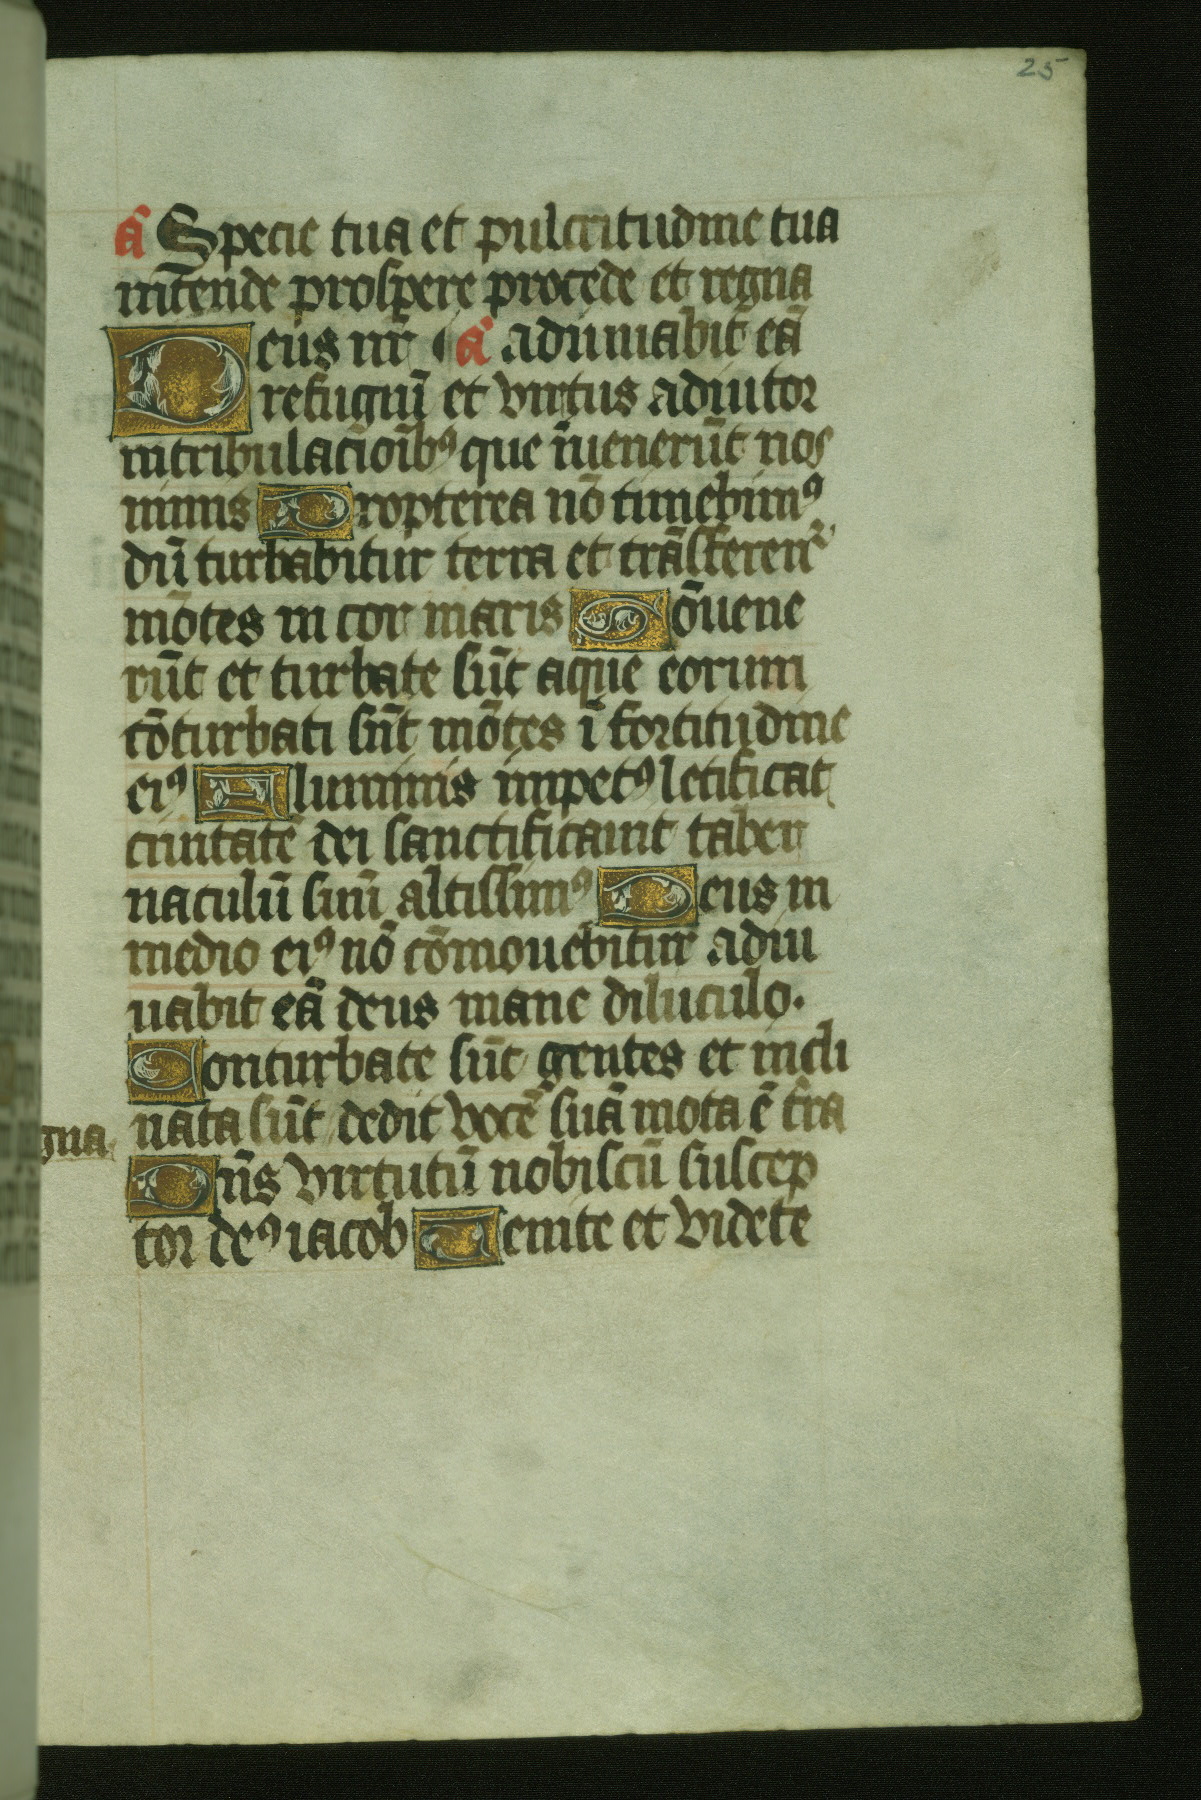 25
ā Specie tua et pulcritudine tua
intende prospere procede et regna
Deus nr̄ ā adiuuabit eā
refugiū et virtus adiutor
in tribulacōib⁹ que īuenerūt nos
nimis Propterea nō timebim⁹
dū turbabitur terra et trāsferent᷑
mōtes in cor maris Sōuene
rūt et turbate sūt aque eorum
cōturbati sūt mōtes ī fortitudine
ei⁹ Fluminis impet⁹ letificat
ciuitatē dei sanctificauit taber
naculū suū altissim⁹ Deus in
medio ei⁹ nō cōmouebitur adiu
uabit eā deus mane diluculo.
Conturbate sūt gentes et incli
nata sūt dedit vocē suā mota ē t̄ra
gna
Dn̄s virtutū nobiscū suscep
tor de⁹ iacob Uenite et videte